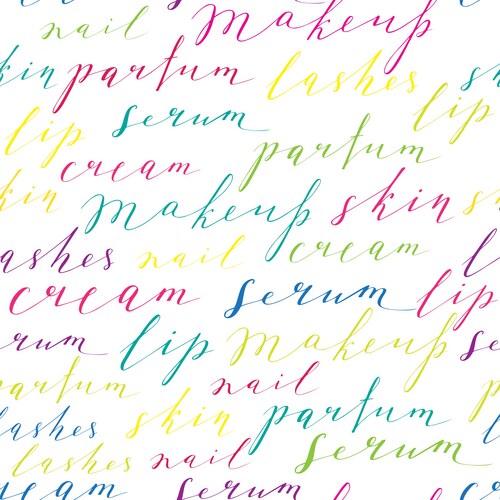 nail makeup
skin parfum lashes
lip serum lip
cream parfum
skin makeup skin
lashes nail cream
cream serum lip
serum lip makeup
parfum nail
lashes skin parfum
lashes nail serum
cream serum